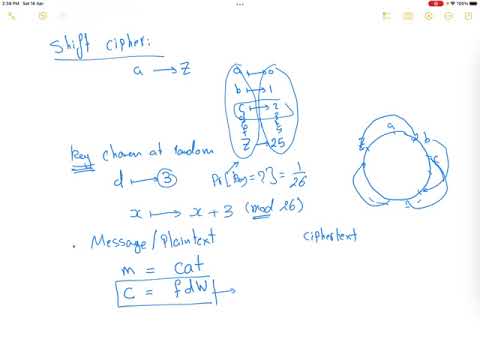 2:38 PM Sat 16 Apr
100%
Shift cipher:
a → z
a → 0
b → 1
c → 2
z → 25
Key chosen at random
d → 3
Pr[key = ?] = 1/26
x → x + 3 (mod 26)
a
b
c
z
Message/Plaintext
ciphertext
m = cat
c = fdw